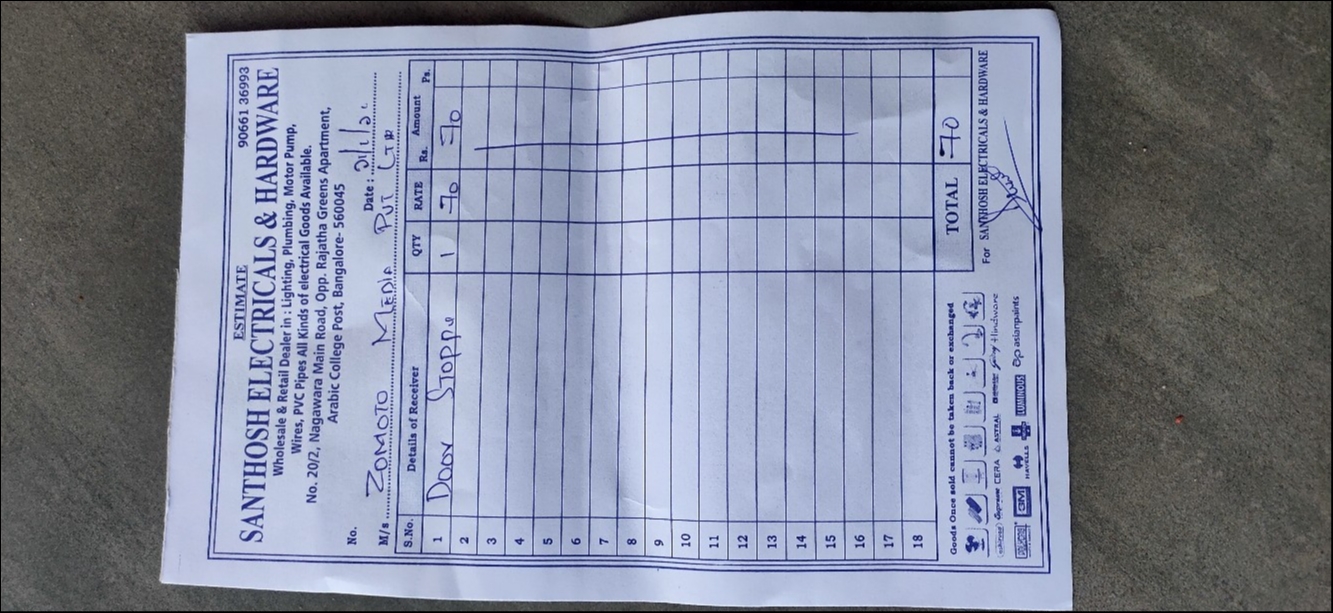 ESTIMATE
90661 36993
SANTHOSH ELECTRICALS & HARDWARE
Wholesale & Retail Dealer in : Lighting, Plumbing, Motor Pump,
Wires, PVC Pipes All Kinds of electrical Goods Available.
No. 20/2, Nagawara Main Road, Opp. Rajatha Greens Apartment,
Arabic College Post, Bangalore- 560045
No. Date :
M/s ZOMOTO MEDIA PVT LTD
S.No. Details of Receiver QTY RATE Rs. Amount Ps.
1 Door Stoppe 1 70 70
2
3
4
5
6
7
8
9
10
11
12
13
14
15
16
17
18
TOTAL 70
Goods Once sold cannot be taken back or exchanged
For SANTHOSH ELECTRICALS & HARDWARE
Supreme CERA ASTRAL Hindware
POLYCAB 3M HAVELLS LUMINOUS asianpaints